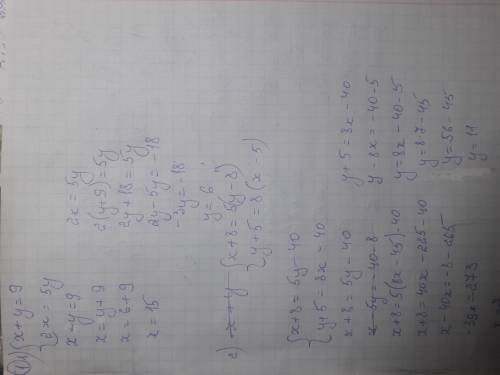 1) { x + y = 9
2x = 5y
x - y = 9
x = y + 9
x = 6 + 9
x = 15
2x = 5y
2(y + 9) = 5y
2y + 18 = 5y
2y - 5y = -18
-3y = -18
y = 6
2) x + y { x + 8 = 5(y - 8)
y + 5 = 8(x - 5)
{ x + 8 = 5y - 40
y + 5 - 8x = 40
x + 8 = 5y - 40
x - 5y = -40 - 8
x + 8 = 5(8x - 45) - 40
x + 8 = 40x - 225 - 40
x - 40x = -8 - 265
-39x = 273
y + 5 = 8x - 40
y - 8x = -40 - 5
y = 8x - 40 - 5
y = 8·7 - 45
y = 56 - 45
y = 11